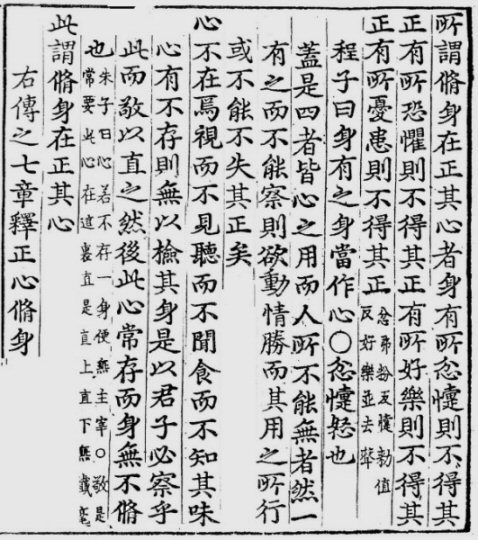 所謂脩身在正其心者身有所忿懥則不得其
正有所恐懼則不得其正有所好樂則不得其
正有所憂患則不得其正忿弗粉反懥勑值
反好樂並去聲
程子曰身有之身當作心〇忿懥怒也
蓋是四者皆心之用而人所不能無者然一
有之而不能察則欲動情勝而其用之所行
或不能不失其正矣
心不在焉視而不見聽而不聞食而不知其味
心有不存則無以檢其身是以君子必察乎
此而敬以直之然後此心常存而身無不脩
也朱子曰心若不存一身便無主宰〇敬是
常要此心在這裏直是直上直下無纖毫
此謂脩身在正其心
右傳之七章釋正心脩身